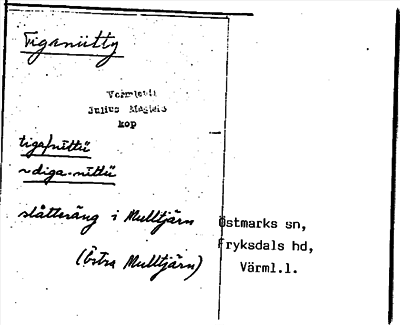 Tiganiitty
Värmland
Julius Mägiste
kop
tiga/nīttü
~ diga·nīttü
slåtteräng i Mulltjärn
(Östra Mulltjärn)
Östmarks sn,
Fryksdals hd,
Värml.l.